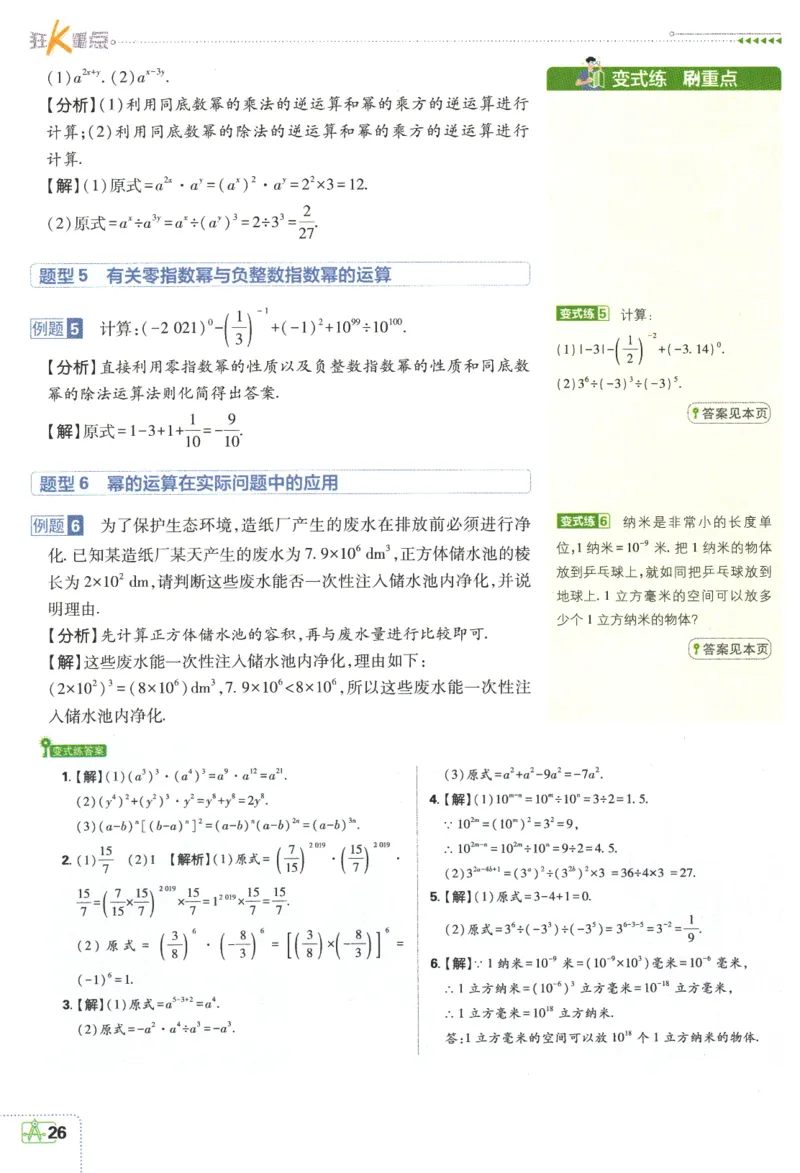 狂K重点
(1)a^{2x+y}. (2)a^{x-3y}.
【分析】(1)利用同底数幂的乘法的逆运算和幂的乘方的逆运算进行
计算;(2)利用同底数幂的除法的逆运算和幂的乘方的逆运算进行
计算.
【解】(1)原式=a^{2x}·a^{y}=(a^{x})^{2}·a^{y}=2^{2}×3=12.
(2)原式=a^{x}÷a^{3y}=a^{x}÷(a^{y})^{3}=2÷3^{3}=\frac{2}{27}.
题型5 有关零指数幂与负整数指数幂的运算
例题5 计算:(-2 021)^{0}-(\frac{1}{3})^{-1}+(-1)^{2}+10^{99}÷10^{100}.
【分析】直接利用零指数幂的性质以及负整数指数幂的性质和同底数
幂的除法运算法则化简得出答案.
【解】原式=1-3+1+\frac{1}{10}=-\frac{9}{10}.
题型6 幂的运算在实际问题中的应用
例题6 为了保护生态环境,造纸厂产生的废水在排放前必须进行净
化.已知某造纸厂某天产生的废水为7.9×10^{6} dm^{3},正方体储水池的棱
长为2×10^{2} dm,请判断这些废水能否一次性注入储水池内净化,并说
明理由.
【分析】先计算正方体储水池的容积,再与废水量进行比较即可.
【解】这些废水能一次性注入储水池内净化,理由如下:
(2×10^{2})^{3}=(8×10^{6})dm^{3},7.9×10^{6}<8×10^{6},所以这些废水能一次性注
入储水池内净化.
变式练 刷重点
变式练5 计算:
(1)|-3|-(\frac{1}{2})^{-2}+(-3.14)^{0}.
(2)3^{6}÷(-3)^{3}÷(-3)^{5}.
答案见本页
变式练6 纳米是非常小的长度单
位,1纳米=10^{-9}米.把1纳米的物体
放到乒乓球上,就如同把乒乓球放到
地球上.1立方毫米的空间可以放多
少个1立方纳米的物体?
答案见本页
变式练答案
1.【解】(1)(a^{3})^{3}·(a^{4})^{3}=a^{9}·a^{12}=a^{21}.
(2)(y^{4})^{2}+(y^{2})^{3}·y^{2}=y^{8}+y^{8}=2y^{8}.
(3)(a-b)^{n}[(b-a)^{n}]^{2}=(a-b)^{n}(a-b)^{2n}=(a-b)^{3n}.
2.(1)\frac{15}{7} (2)1 【解析】(1)原式=(\frac{7}{15})^{2 019}·(\frac{15}{7})^{2 019}·
\frac{15}{7}=(\frac{7}{15}×\frac{15}{7})^{2 019}×\frac{15}{7}=1^{2 019}×\frac{15}{7}=\frac{15}{7}.
(2)原式=(\frac{3}{8})^{6}·(-\frac{8}{3})^{6}=[(\frac{3}{8})×(-\frac{8}{3})]^{6}=
(-1)^{6}=1.
3.【解】(1)原式=a^{5-3+2}=a^{4}.
(2)原式=-a^{2}·a^{4}÷a^{3}=-a^{3}.
(3)原式=a^{2}+a^{2}-9a^{2}=-7a^{2}.
4.【解】(1)10^{m-n}=10^{m}÷10^{n}=3÷2=1.5.
∵10^{2m}=(10^{m})^{2}=3^{2}=9,
∴10^{2m-n}=10^{2m}÷10^{n}=9÷2=4.5.
(2)3^{2a-4b+1}=(3^{a})^{2}÷(3^{2b})^{2}×3 =36÷4×3 =27.
5.【解】(1)原式=3-4+1=0.
(2)原式=3^{6}÷(-3^{3})÷(-3^{5})=3^{6-3-5}=3^{-2}=\frac{1}{9}.
6.【解】∵1纳米=10^{-9}米=(10^{-9}×10^{3})毫米=10^{-6}毫米,
∴1立方纳米=(10^{-6})^{3}立方毫米=10^{-18}立方毫米,
∴1立方毫米=10^{18}立方纳米.
答:1立方毫米的空间可以放10^{18}个1立方纳米的物体.
26